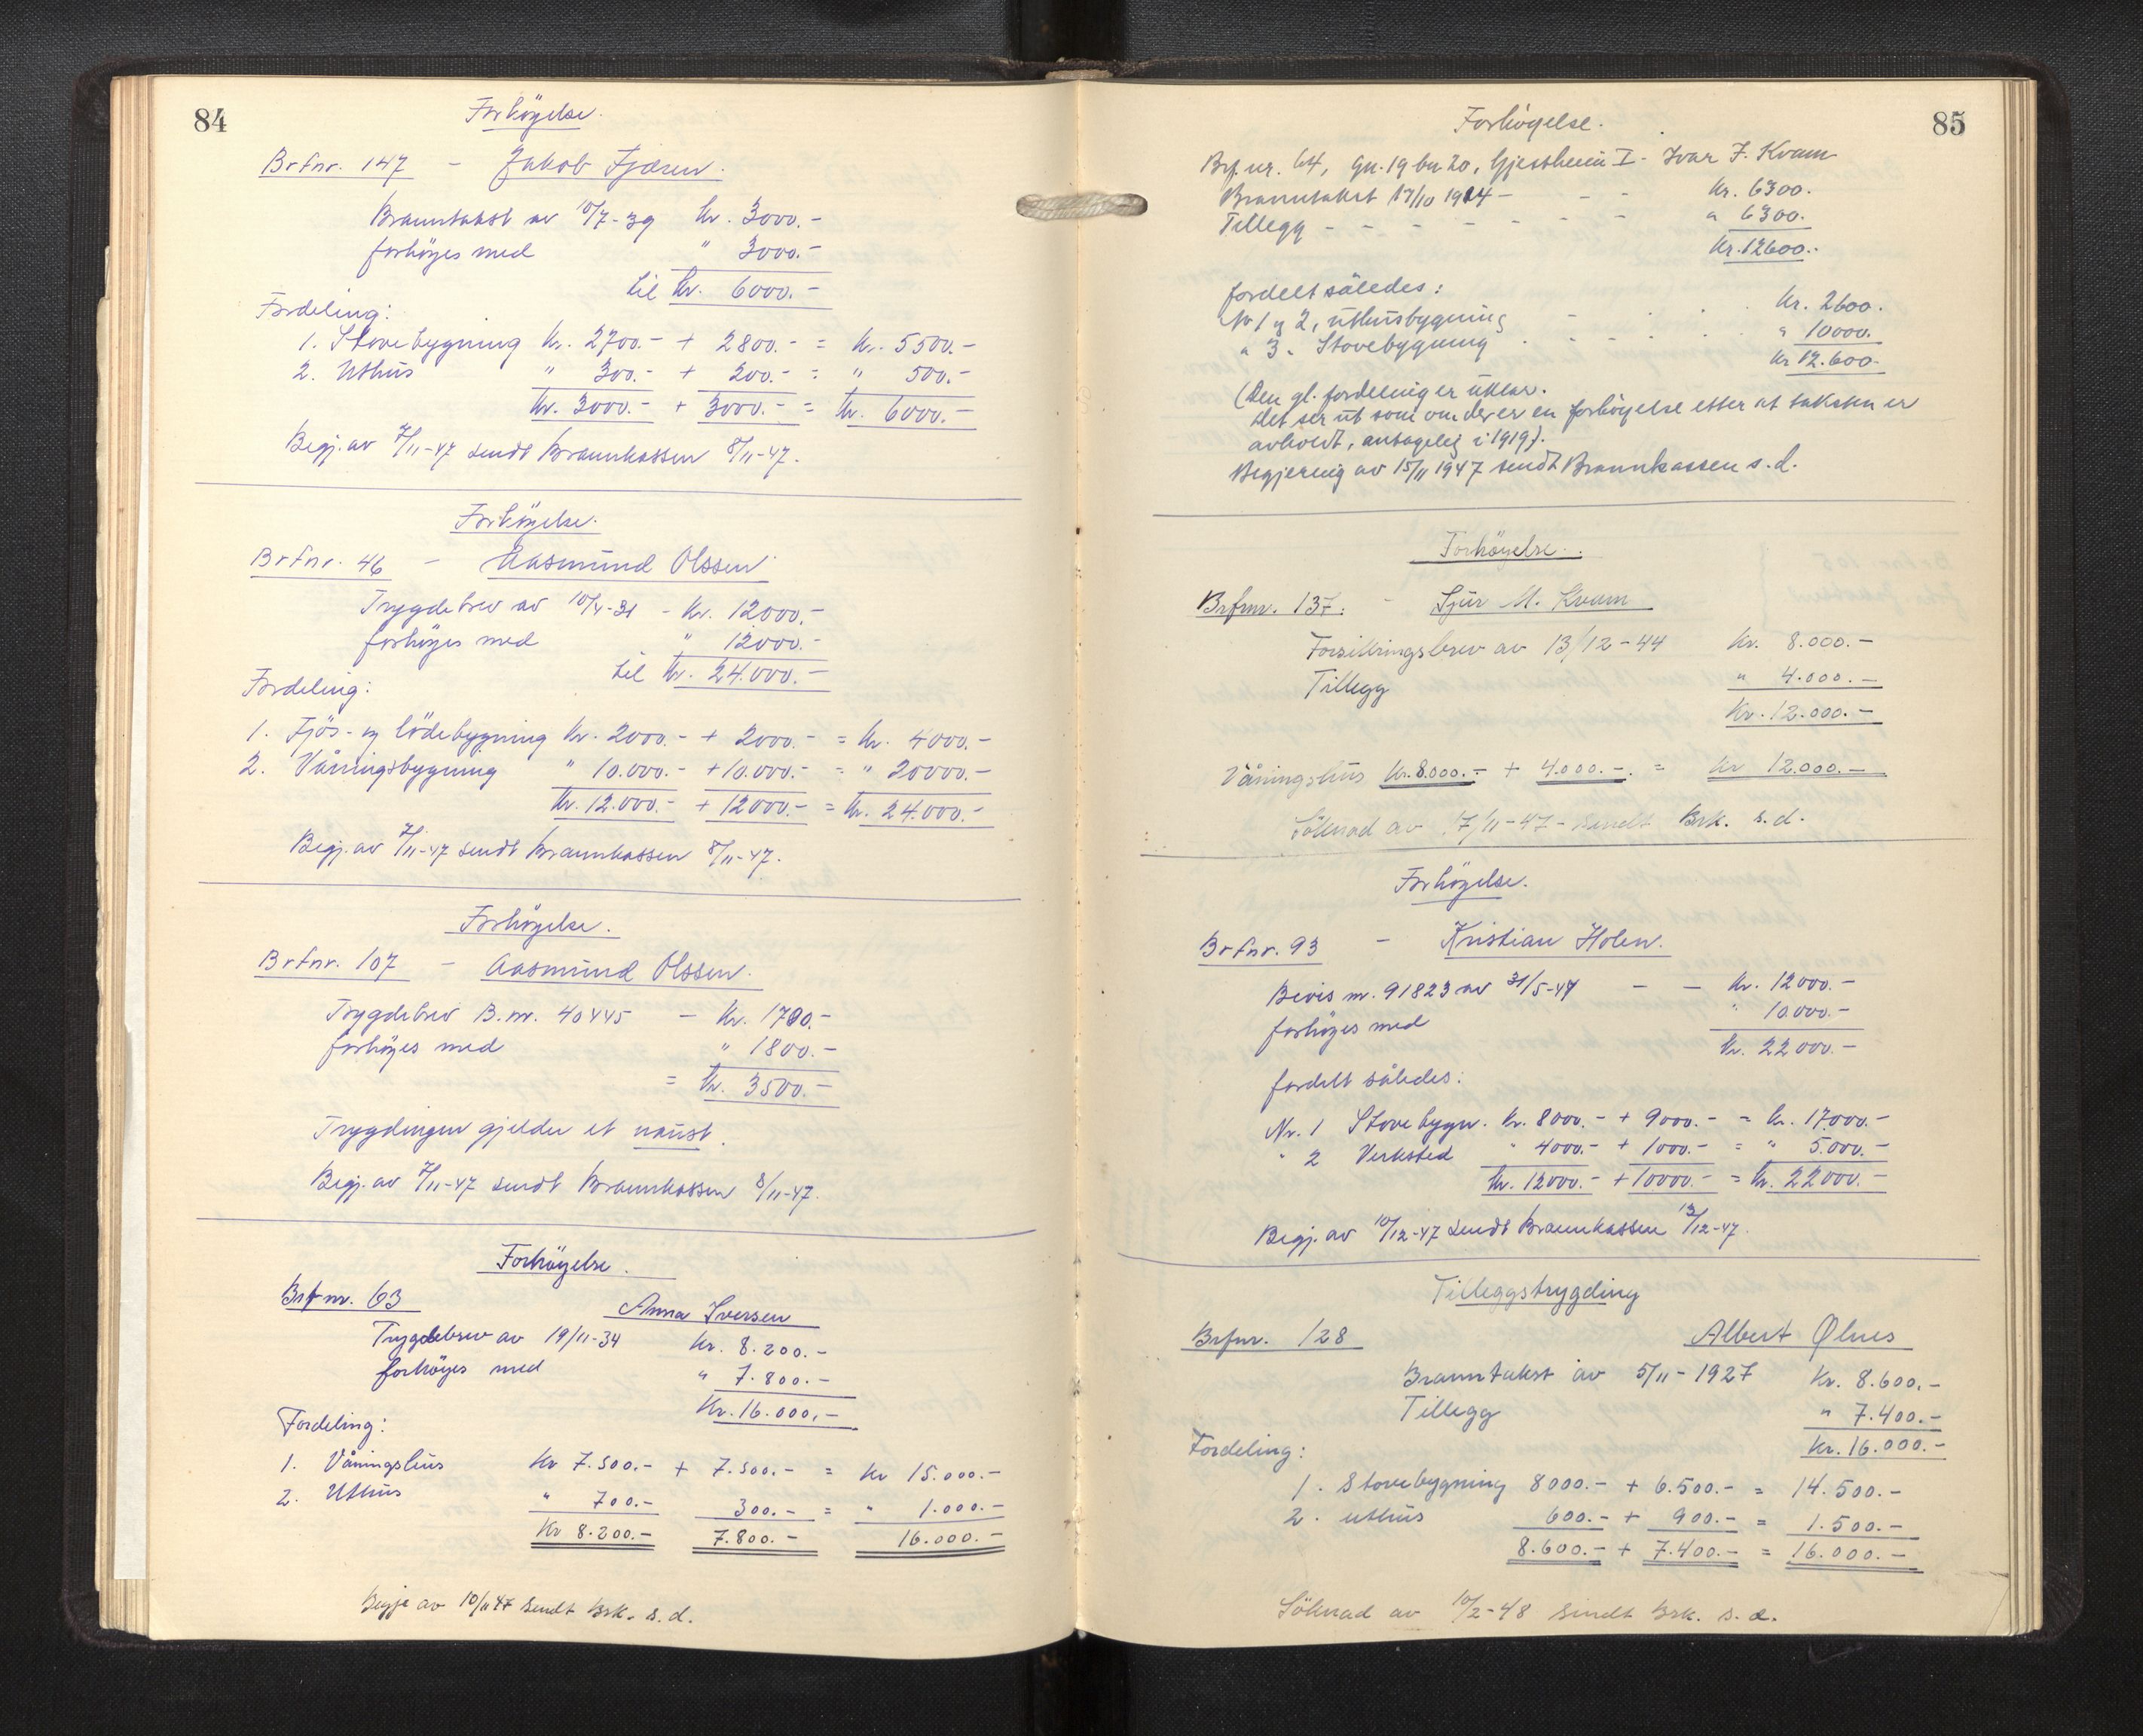 84
Forhöyelse.
Brfnr. 147 - Jakob Fjæren.
Branntakst av 10/7-39 kr. 3000.-
forhöyes med " 3000.-
til kr. 6000.-
Fordeling:
1. Stovebygning kr. 2700.- + 2800.- = kr. 5500.-
2. Uthus " 300.- + 200.- = " 500.-
kr. 3000.- + 3000.- = kr. 6000.-
Begj. av 7/11-47 sendt Brannkassen 8/11-47.
Forhöyelse.
Brfnr. 46 - Aasmund Olssen
Trygdebrev av - kr. 12000.-
forhöyes med " 12000.-
til kr. 24.000.-
Fordeling:
1. Fjös- og lödebygning kr. 2000.- + 2000.- = kr. 4000.-
2. Våningsbygning " 10.000.- + 10.000.- = " 20000.-
kr. 12.000.- + 12000.- = kr. 24.000.-
Begj. av 7/11-47 sendt Brannkassen 8/11-47.
Forhöyelse.
Brfnr. 107 - Aasmund Olssen.
Trygdebrev B.nr. 40445 - kr. 1700.-
forhöyes med " 1800.-
= kr. 3500.-
Trygdingen gjelder et naust.
Begj. av 7/11-47 sendt Brannkassen 8/11-47.
Forhöyelse.
Brfnr. 63 Anna Iversen
Trygdebrev av 19/11-34 kr. 8.200.-
forhöyes med " 7.800.-
Kr. 16.000.-
Fordeling:
1. Våningshus Kr 7.500.- + 7.500.- = Kr 15.000.-
2. Uthus " 700.- 300.- = " 1.000.-
Kr 8.200.- 7.800.- 16.000.-
Begjæ av 10/11 47 sendt Brk. s.d.
85
Forhöyelse.
Brf. nr. 64, gn. 19 bn 20, Gjestheim I - Ivar J. Kvam
Branntakst 17/10 1914 - - - kr. 6300.
Tillegg - - - - - - " 6300.
kr. 12600.-
fordelt således:
Nr 1 og 2, uthusbygning - kr. 2600.
" 3. Stovebygning " 10000.
kr 12.600-
(Den gl. fordeling er uklar.
Det ser ut som om der er en forhöyelse etter at taksten er
avholdt, antagelig i 1919).
Begjering av 15/11 1947 sendt Brannkassen s.d.
Forhöyelse.
Brfnr. 137: - Sjur M. Kvam
Forsikringsbrev av 13/12-44 Kr. 8.000.-
Tillegg " 4.000.-
Kr. 12.000.-
Våningshus Kr. 8.000.- + 4.000.- = Kr 12.000.-
Söknad av 17/11-47- sendt Brk. s.d.
Forhöyelse.
Brfnr. 93 - Kristian Holen.
Bevis nr. 91823 av - - kr. 12000.-
forhöyes med " 10.000.-
kr. 22000.-
fordelt således:
Nr. 1 Stovebygn. kr. 8000.- + 9000.- = kr. 17.000.-
" 2 Verksted " 4000.- + 1000.- = " 5.000.-
kr. 12000.- + 10000.- = kr. 22000.-
Begj. av 10/12-47 sendt Brannkassen 12/12-47.
Tilleggstrygding
Brfnr. 128 Albert Ølnes
Branntakst av 5/11-1927 Kr. 8.600.-
Tillegg " 7.400.-
Kr. 16.000.-
Fordeling:
1. Stovebygning 8000.- + 6.500.- = 14.500.-
2. uthus 600.- + 900.- = 1.500.-
8.600.- + 7.400.- = 16.000.-
Söknad av 10/2-48 sendt Brk. s.d.